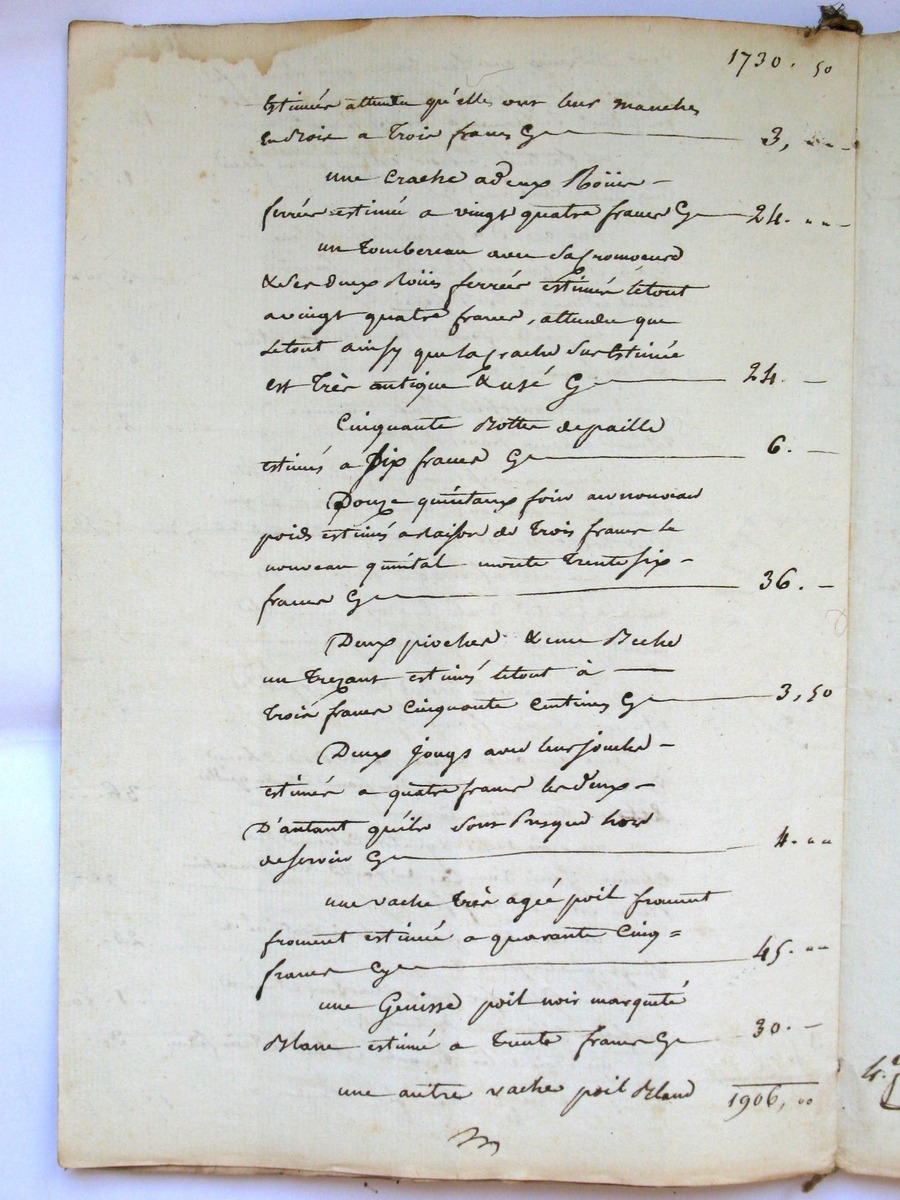 1730. 50
Estimées attendu qu'elles ont leur manches
En Bois a Trois francs Cy 3, " " -
une Crache a deux Roües -
ferrées estimée a vingt quatre francs Cy 24. " " -
un Tombereau avec sa
& ses deux Roües ferrées estimés letout
avingt quatre francs, attendu que
Letout ainsy que la Crache sus Estimée
est Très antique & usé Cy 24. -
Cinquante Bottes depaille
estimés a Six francs Cy 6. -
Douze quintaux foin au nouveau
poids estimés a Raison de Trois francs le
nouveau quintal monte Trente Six -
francs Cy 36. -
Deux pioches & une Beche
un Trezant estimés letout à
Trois francs Cinquante Centimes Cy 3, 50
Deux Jougs avec leur joucles -
estimés a quatre francs les deux -
D'autant qu'ils sont Presque hors
deservir Cy 4. " "
une vache Très agée poil froment
froment estimée a quarante Cinq =
francs Cy 45. " "
une Genisse poil noir marqueté
Blanc estimé a Trente francs Cy 30. -
une autre vache poil Bland 1906, 00